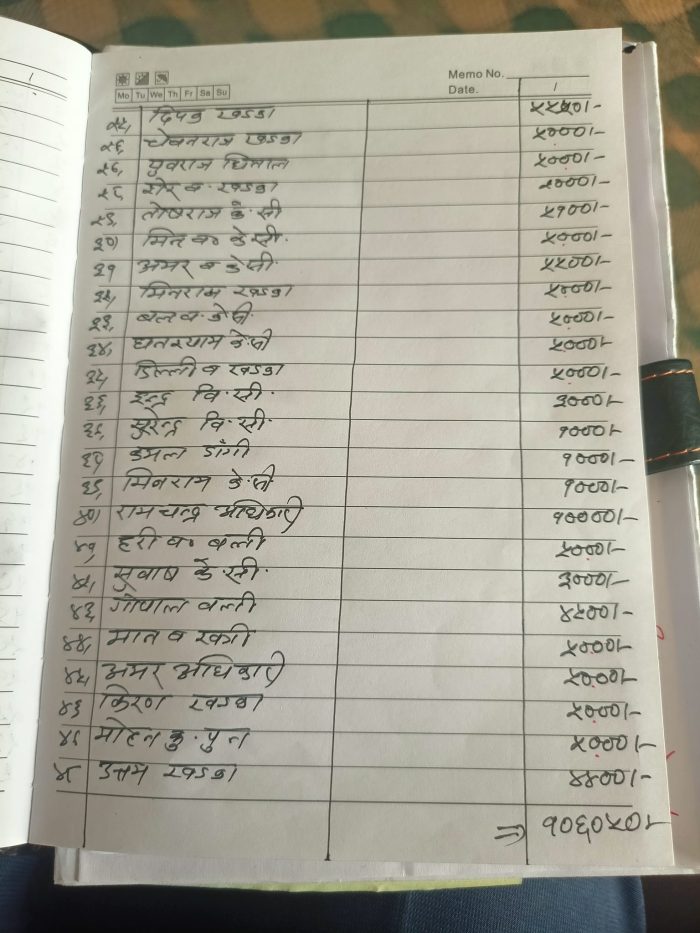 Memo No.
Mo Tu We Th Fr Sa Su
Date. /
२५, दिपक खड्का ५५५०।-
२६, चेवनराज खड्का ५०००।-
२७, युवराज घिमाल ५०००।-
२८, शेर ब. खड्का २०००।-
२९, तोषराज के.सी ५१००।-
३०) मिन ब० के.सी. ५०००।-
३१ अमर ब के.सी. ५५००।-
३२, मिनराम खड्का ५०००।-
३३, बल ब. के.सी. ५०००।-
३४, घनश्याम के.सी ५०००।-
३५, डिल्ली ब खड्का ५०००।-
३६, इन्द्र वि.सी. ३०००।-
३७, सुरेन्द्र वि.सी. १०००।-
३८, कमल डाँगी १०००।-
३९, मिनराम के.सी १०००।-
४०) रामचन्द्र अधिकारी १००००।-
४१, हरी ब० वली ५०००।-
४२, सुवाष के.सी. ३०००।-
४३, गोपाल वली ४५००।-
४४, मान ब रक्की ५०००।-
४५, अमर अधिकारी ५०००।-
४६ किरण खड्का ५०००।-
४७ मोहन कु. पुन ५०००।-
४८ उत्तम खड्का ४४००।-
⇒ १०६०५०।-